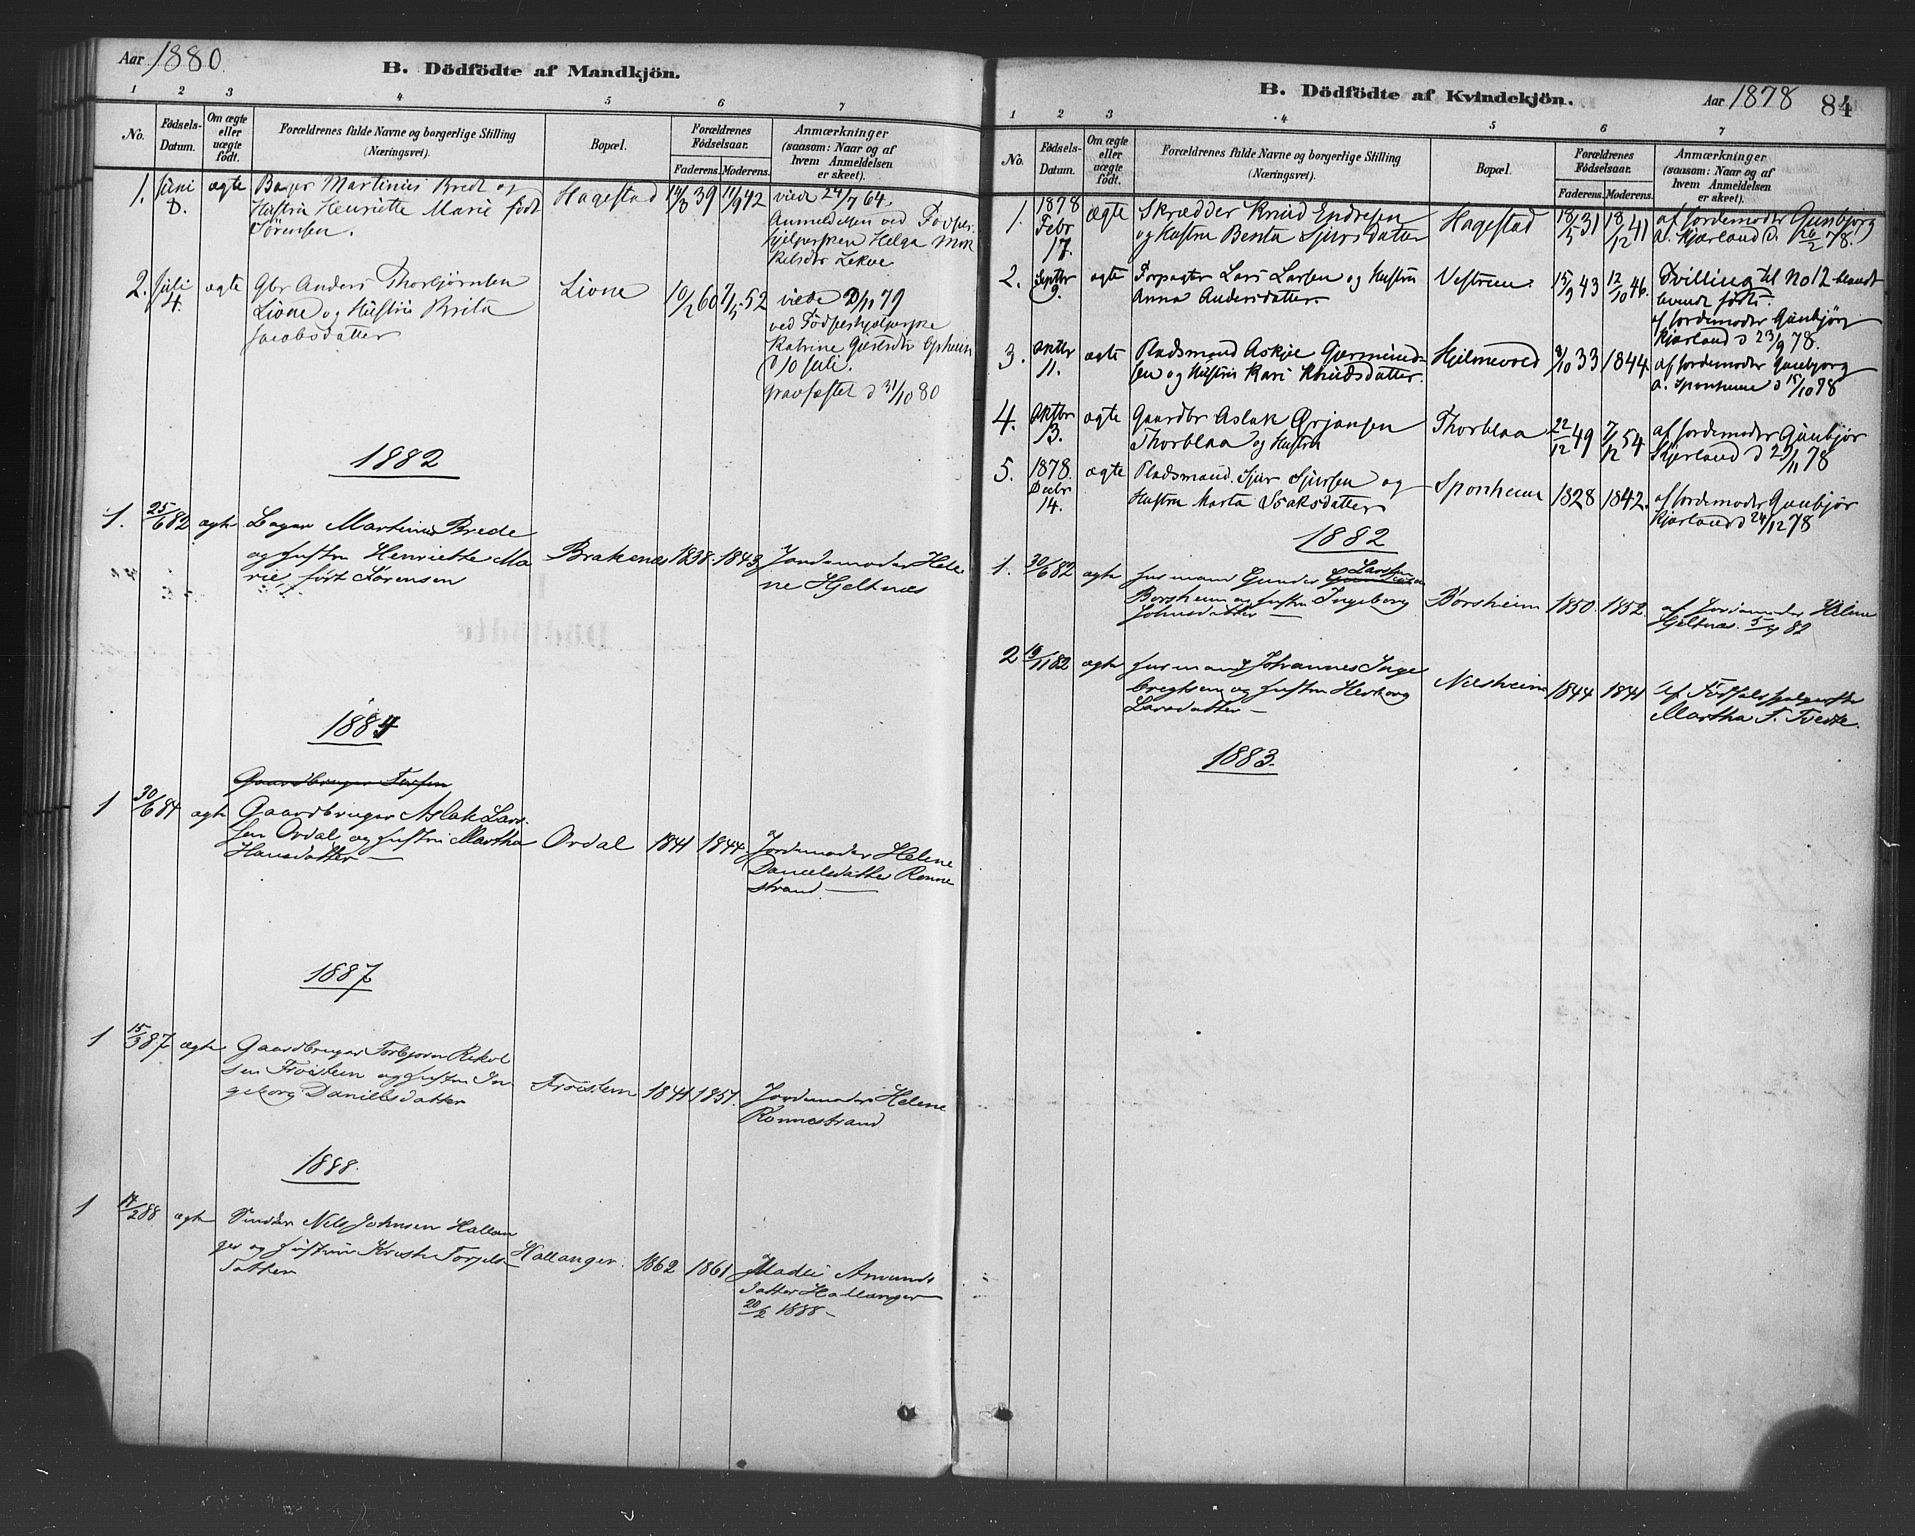 Aar 1880
B. Dödfödte af Mandkjön.
1 2 3 4 5 6 7
No. Födsels-Datum. Om ægte eller uægte födt. Forældrenes fulde Navne og borgerlige Stilling (Næringsvei). Bopæl. Forældrenes Födselsaar. Faderens. Moderens. Anmærkninger (saasom: Naar og af hvem Anmeldelsen er skeet).
1. Juni 8. ægte Bager Martinius Brede og
Hustru Henriette Marie födt
Sörensen.
Hagestad 39 11/9 42 viede 24/7 64.
Anmeldelsen ved Födsels-
hjelpersken Helga
Lekve
2. Juli 4. ægte Gbr Anders Thorbjörnsen
Lione og Hustru Brita
Jacobsdatter
Lione 10/2 60 7/5 52 viede 79
ved Födselshjelperske
Katrine Opheim
d 10 Juli.
gravfæstet d 31/10 80
1882
1. 25/6 82 ægte Bager Martinus Brede
og Hustru Henriette Ma
rie, födt Sörensen
Brakenæs 1838. 1843. Jordemoder Hele
ne Hjeltnæs
1884
Gaardbruger
1 30/6 84 ægte Gaardbruger Aslak Lars
sen Ordal og Hustru Martha
Hansdatter
Ordal 1841 1844. Jordemoder Helene
Danielsdatter Rønne
strand
1887
1 15/3 87 ægte Gaardbruger Torbjørn
sen Froistein og Hustru In
geborg Danielsdatter
Froistein 1841 1851. Jordemoder Helene
Rønnestrand
1888.
1 14/2 88 ægte Nils Johnsen Hallan
ger og Hustru Kristi Torgils
datter
Hallanger. 1862 1861 Amunds
datter Hallanger
20/2 1888
B. Dödfödte af Kvindekjön. Aar 1878 84
1 2 3 4 5 6 7
No. Födsels-Datum. Om ægte eller uægte födt. Forældrenes fulde Navne og borgerlige Stilling (Næringsvei). Bopæl. Forældrenes Födselsaar. Faderens. Moderens. Anmærkninger (saasom: Naar og af hvem Anmeldelsen er skeet).
1. 1878 Febr 17. ægte Skrædder Knud Endresen
og Hustru Benta Sjursdatter
Hagestad 18/5 31 18/12 41 af Jordemoder Gunbjørg
A. Kjærland d. 26/2 78.
2. Septbr 9. ægte Forpagter Lars Larsen og Hustru
Anna Andersdatter
Vestrem 15/9 43 12/10 46. Tvilling til No 12 blandt
levende födte.
af Jordemoder Gunbjörg
Kjærland d 23/9 78.
3. Oktbr 11. ægte Pladsmand Askje Germund-
sen og Hustru Kari Knudsdatter.
Hjelmevold 8/10 33 1844. af Jordemoder Gunbjorg
A. Sponheim d 15/10 78
4. Oktbr 13. ægte Gaardbr Aslak Ørjansen
Thorblaa og Hustru
Thorblaa 22/12 49 7/12 54 af Jordemoder Gunbjør
Kjærland d 23/11 78
5. 1878 Decbr 14. ægte Pladsmand Sjur Sjursen og
Hustru Marta Isaksdatter
Sponheim 1828 1842. af Jordemoder Gunbjør
Kjærland d 24/12 78
1882
1. 30/6 82 ægte Husmand Gunder Larssen
Borsheim og Hustru Ingeborg
Johnsdatter
Borsheim 1850. 1852. af Jordemoder Helene
Hjeltnæs. 5/7 82
2 19/11 82 ægte Husmand Johannes Inge
bregtsen og Hustru Herborg
Larsdatter
Nesheim 1844 1841 af Fødselshjelperske
Martha T. Tveite.
1883.